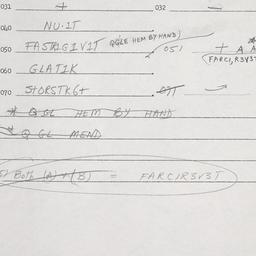 031 + 032 —
040 NU·1T
050 FASTR1G1V1T (QGLE HEM BY HAND) 051 + A A
(FARC1,R3V3T
060 GLAT1K
070 STORSTK6+ 071
* Q GL HEM BY HAND
* Q GL MEND
BOTH (A) + (B) = FARC1R3V3T